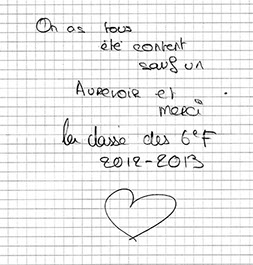 On as tous
été content
sauf un
Aurevoir et
merci
la classe des 6eF
2012-2013